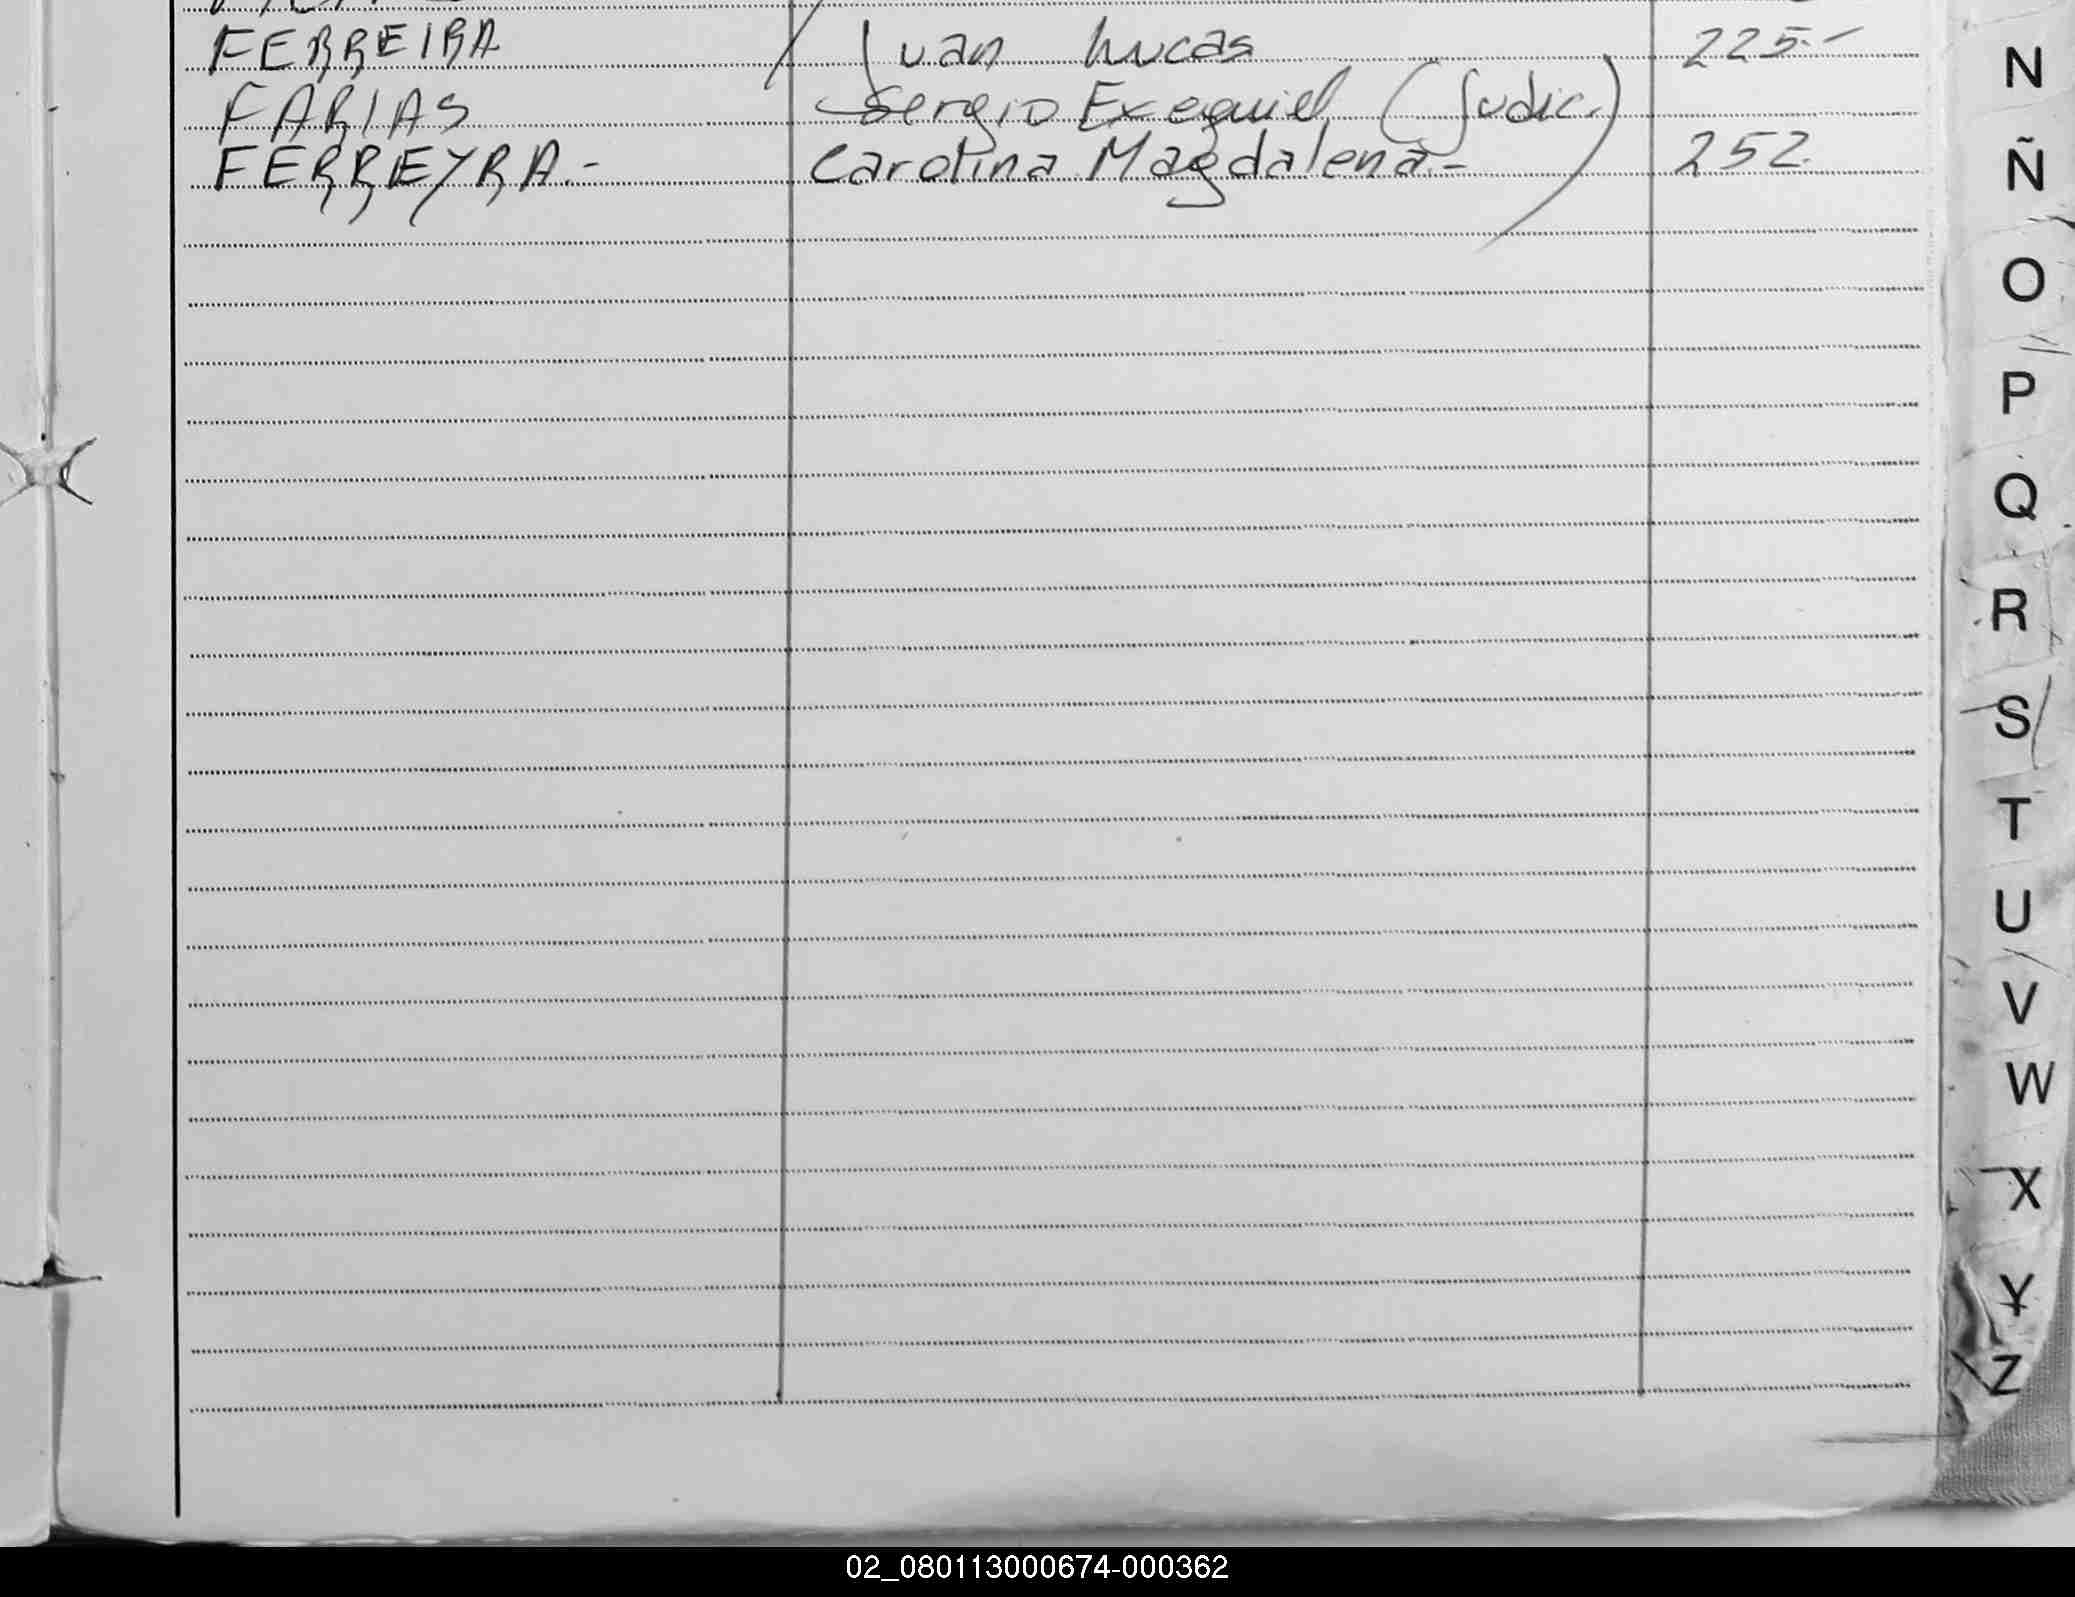 FERREIRA / Juan Lucas 225.-
FARIAS Sergio Exequiel (Judic.)
FERREYRA.- Carolina Magdalena.- 252.
N
Ñ
O
P
Q
R
S
T
U
V
W
X
Y
Z
02_080113000674-000362